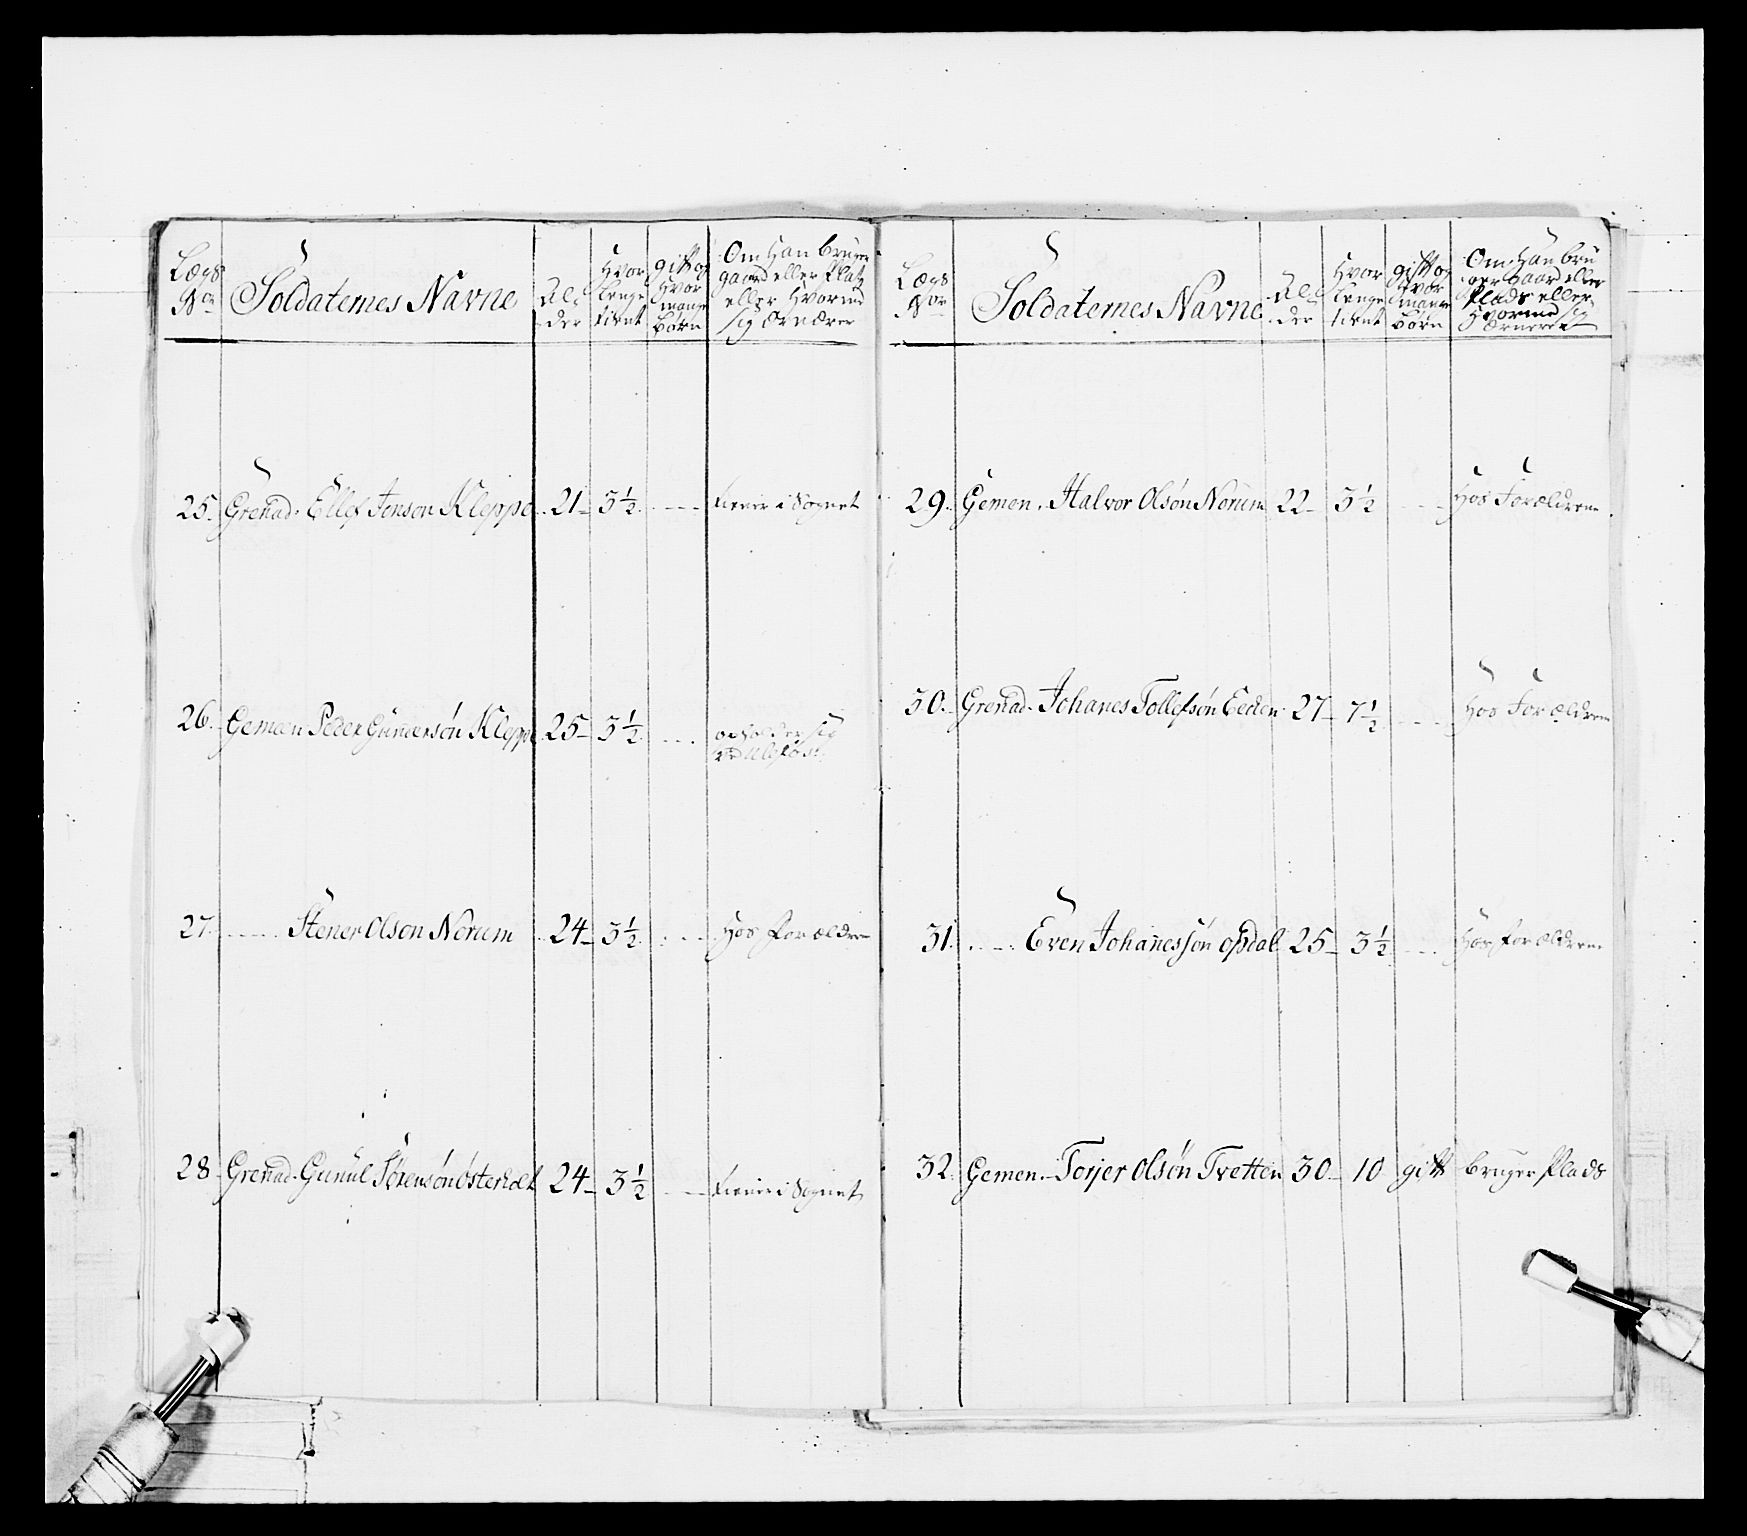 Lægs No
Soldaternes Navne
Al-der
Hvor længe tient
gift og Hvor mange børn
Om Han bruger gaard eller Platz eller Hvormed sig Ernærer
25. Grenad. Ellef Jonson Kleppe 21 3½ Tiener i Sognet
26. Gemeen Peder Gunersøn Kleppe 25 3½ opholder sig ved Ulefos
27. Stener Olson Norum 24 3½ Hos forældrene
28 Grenad. Gunul Sørensøn 24 3½ Tiener i Sognet
Lægs No
Soldaternes Navne
Al-der
Hvor længe tient
gift og Hvor mange børn
Om Han bruger Gaard eller Plads eller Hvormed sig Ernærer
29. Gemen. Halvor Olsøn Norum 22 3½ Hos Forældrene
30. Grenad. Johanes Tollefsøn Eeden 27 7½ Hos Forældrene
31. Even Johanessøn opdal 25 3½ Hos forældrene
32. Gemen. Torjer Olsøn Tvetten 30 10 gift bruger Plads